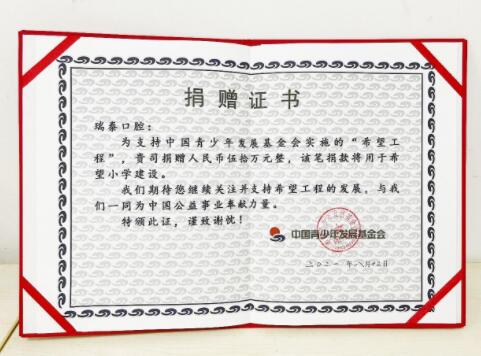 捐赠证书
瑞泰口腔：
为支持中国青少年发展基金会实施的“希望工
程”，贵司捐赠人民币伍拾万元整，该笔捐款将用于希
望小学建设。
我们期待您继续关注并支持希望工程的发展，与我
们一同为中国公益事业奉献力量。
特颁此证，谨致谢忱！
中国青少年发展基金会
二〇二一年八月12日